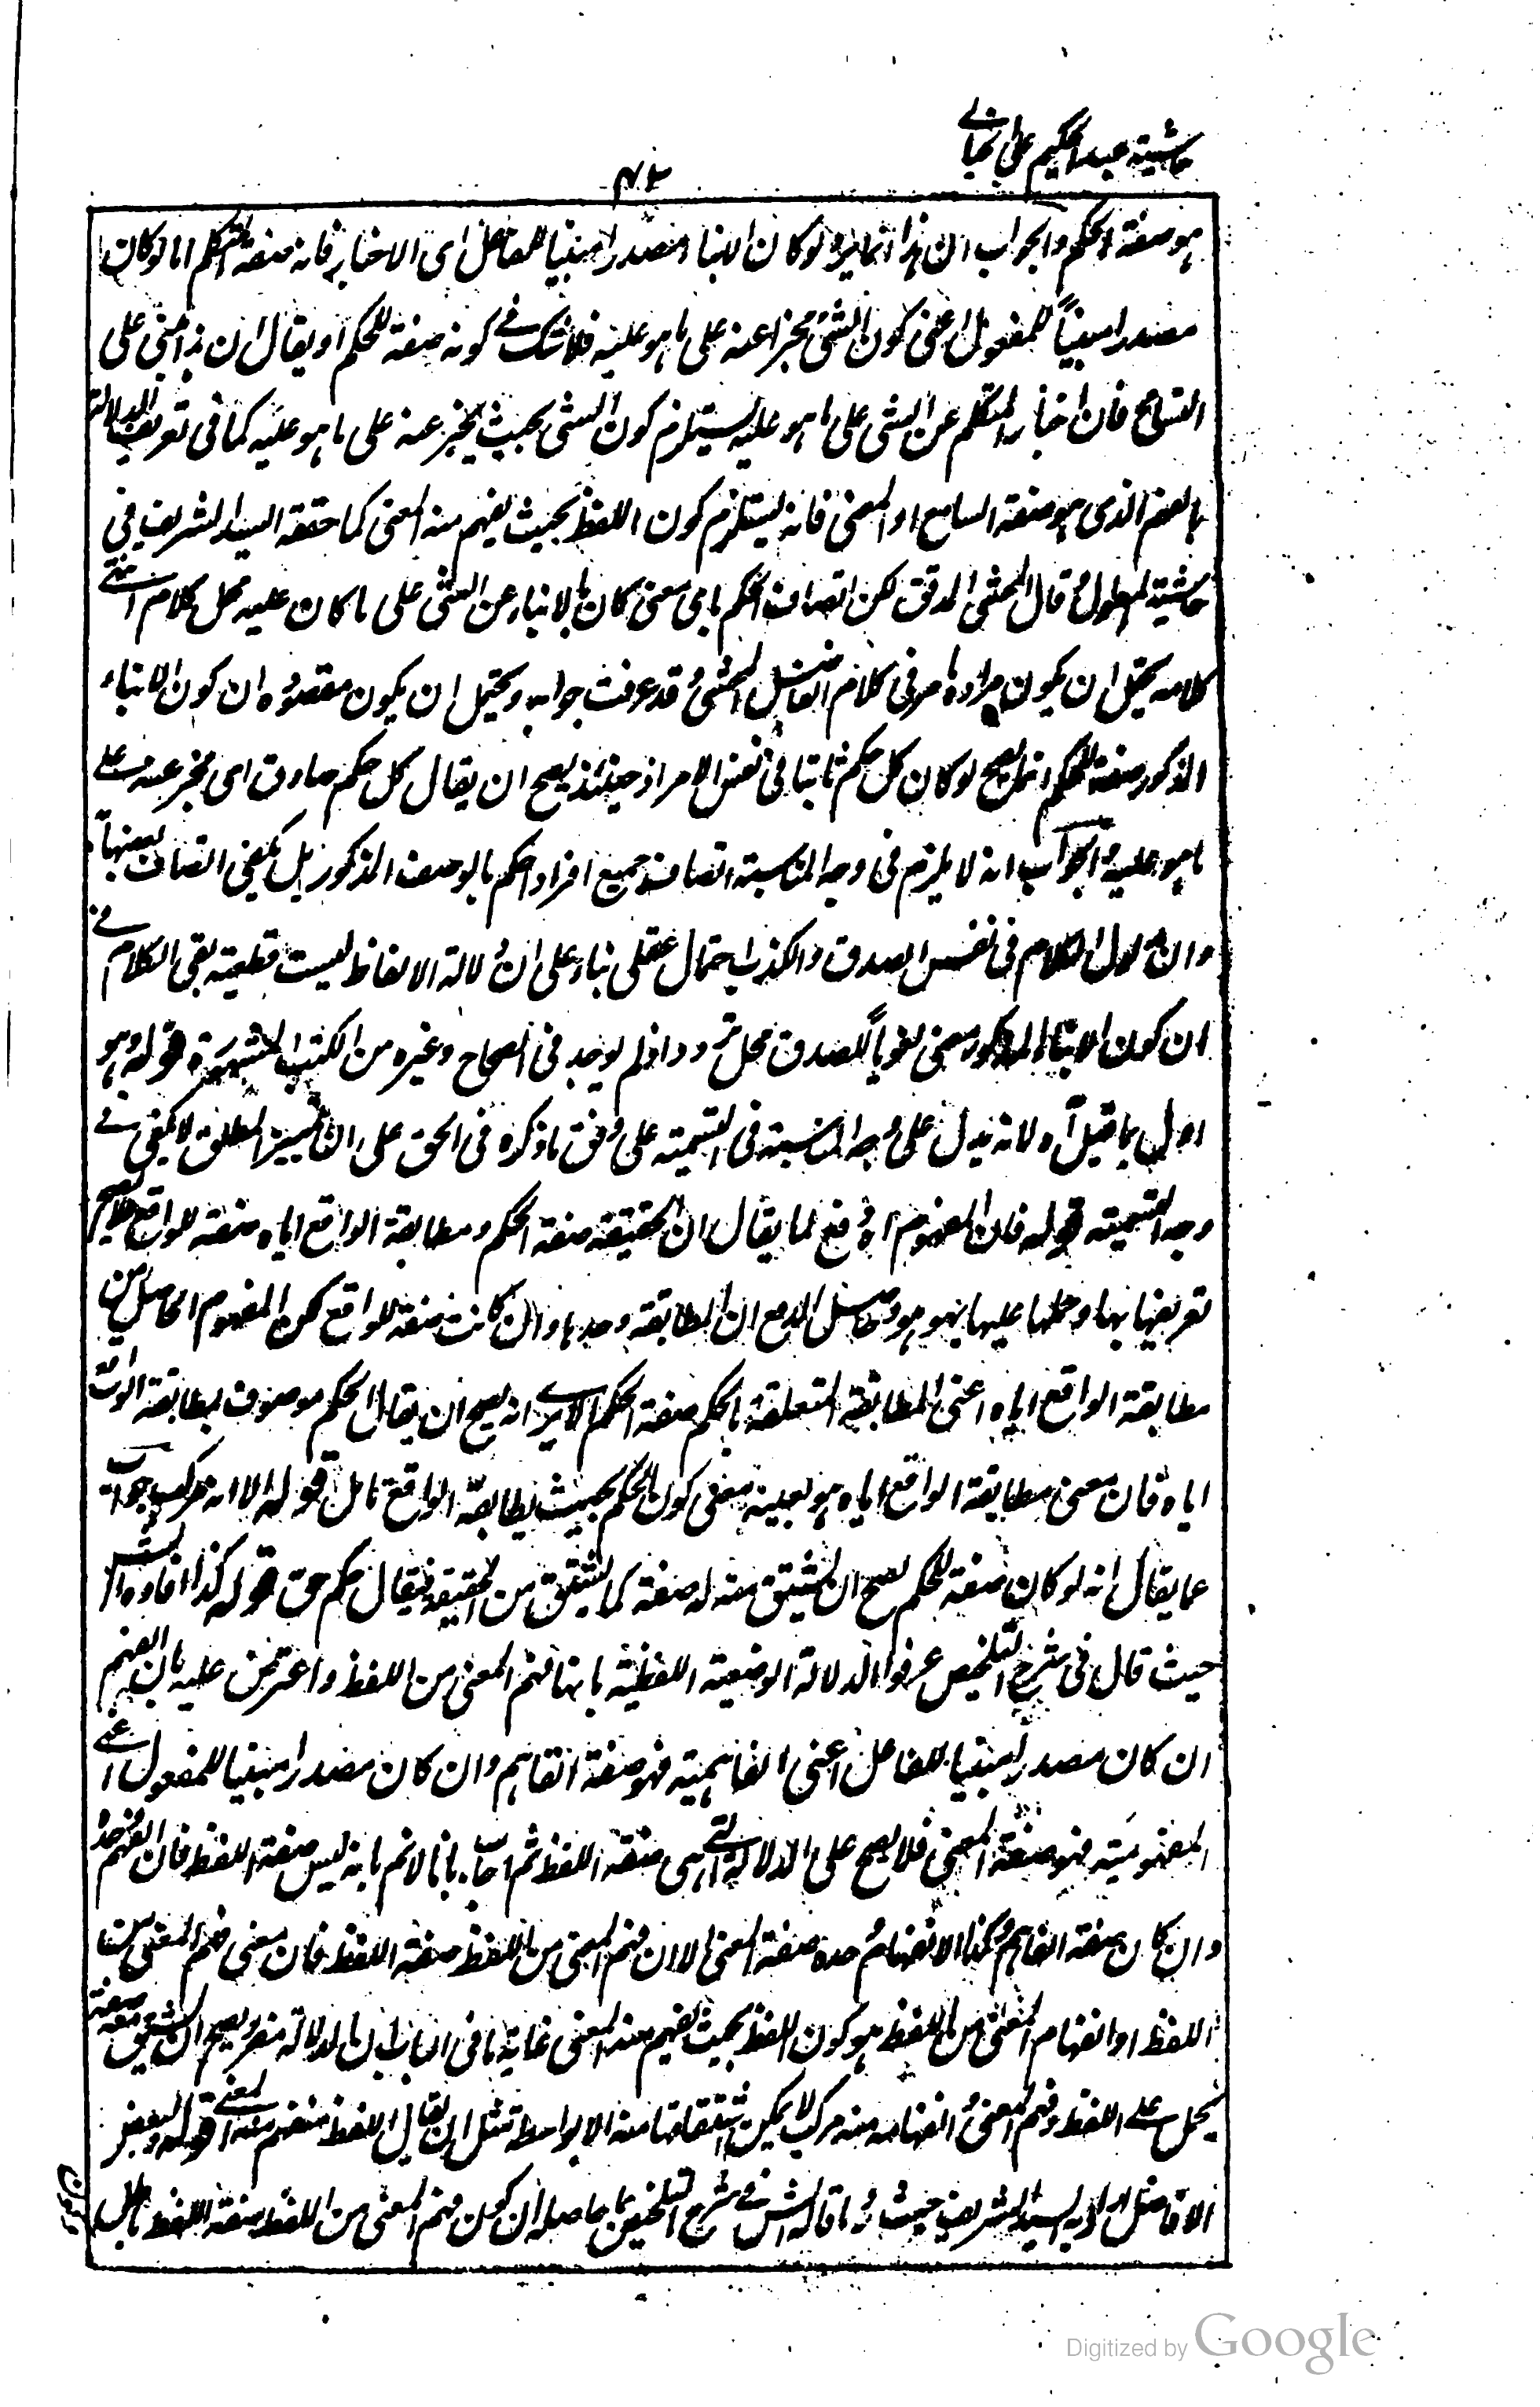 حاشية عبد الحكيم على خيالے
٤٢
هو صفة الحكم والجواب ان هذا انما يرد لو كان الانباء مصدرا مبنيا للفاعل اى الاخبار فانه صفة المتكلم اما لو كان
مصدرا مبنياً للمفعول اعنى كون الشئ مخبرا عنه على ما هو عليه فلا شك فے كونه صفة للحكم او يقال ان هذا مبنى على
التسامح فان اخبار المتكلم عن الشئ على ما هو عليه يستلزم كون الشئ بحيث يخبر عنه على ما هو عليه كما فى تعريف الدلالة
بالفهم الذى هو صفة السامع او المعنى فانه يستلزم كون اللفظ بحيث يفهم منه المعنى كما حققه السيد الشريف فى
حاشية المطول قال المحشى المدقق لكن اتصاف الحكم باى معنى كان بالانباء عن الشئ على ما كان عليه محل كلام انتهے
كلامه يحتمل ان يكون مراده ما مر فى كلام الفاضل المحشى وقد عرفت جوابه ويحتمل ان يكون مقصوده ان كون الانباء
المذكور صفة للحكم انما يصح لو كان كل حكم ثابتا فى نفس الامر اذ حينئذ يصح ان يقال كل حكم صادق اى مخبر عنه علے
ما هو عليه والجواب انه لا يلزم فى وجه المناسبة اتصاف جميع افراد الحكم بالوصف المذكور بل يكفى اتصاف بعضها به
وان مدلول الكلام فى نفسه الصدق والكذب احتمال عقلى بناء على ان دلالة الالفاظ ليست قطعية بقى الكلام فے
ان كون الانباء المذكور معنى لغوياً للصدق محل تردد اذ لم يوجد فى الصحاح وغيره من الكتب المشهورة قوله وهو
اولى مما قيل آه لانه يدل على وجه المناسبة فى التسمية على وفق ما ذكره فى الحق على ان التمييز المطلق لا يكفى فے
وجه التسمية قوله فان المفهوم آه دفع لما يقال ان الحقيقة صفة الحكم ومطابقة الواقع اياه صفة للواقع فلا يصح
تعريفها بها وحملها عليها بهو هو وحاصل الدفع ان المطابقة وحدها وان كانت صفة للواقع لكن المفهوم الحاصل من
مطابقة الواقع اياه اعنى المطابقة المتعلقة بالحكم صفة الحكم الا يرے انه يصح ان يقال الحكم موصوف بمطابقة الواقع
اياه فان معنى مطابقة الواقع اياه هو بعينه معنى كون الحكم بحيث يطابقه الواقع تامل قوله الا انه مركب جواب
عما يقال انه لو كان صفة للحكم لصح ان يشتق منه له صفة كما يشتق من الحقيقة فيقال حكم حق قوله كذا افاده الش
حيث قال فى شرح التلخيص عرفوا الدلالة الوضعية اللفظية بانها فهم المعنى من اللفظ واعترض عليه بان الفهم
ان كان مصدرا مبنيا للفاعل اعنى الفاهمية فهو صفة الفاهم وان كان مصدرا مبنيا للمفعول اعنے
المفهومية فهو صفة المعنى فلا يصح على الدلالة التے هى صفة اللفظ ثم اجاب بانا لا نم بانه ليس صفة اللفظ فان الفهم وحده
وان كان صفة الفاهم وكذا الانفهام وحده صفة المعنى الا ان فهم المعنى من اللفظ صفة اللفظ فان معنى فهم المعنى من
اللفظ او انفهام المعنى من اللفظ هو كون اللفظ بحيث يفهم منه المعنى غاية ما فى الباب ان الدلالة مفرد يصح ان يشتق منه صفة
يحمل علے اللفظ وفهم المعنى وانفهامه منه مركب لا يمكن اشتقاقها منه الا بواسطة مثل ان يقال اللفظ منفهم منه المعنے قوله وبعض
الافاضل اراد به السيد الشريف حيث رد ما قاله الش فے شرح التلخيص بما حاصله ان كون فهم المعنى من اللفظ صفة اللفظ باطل
Digitized by Google